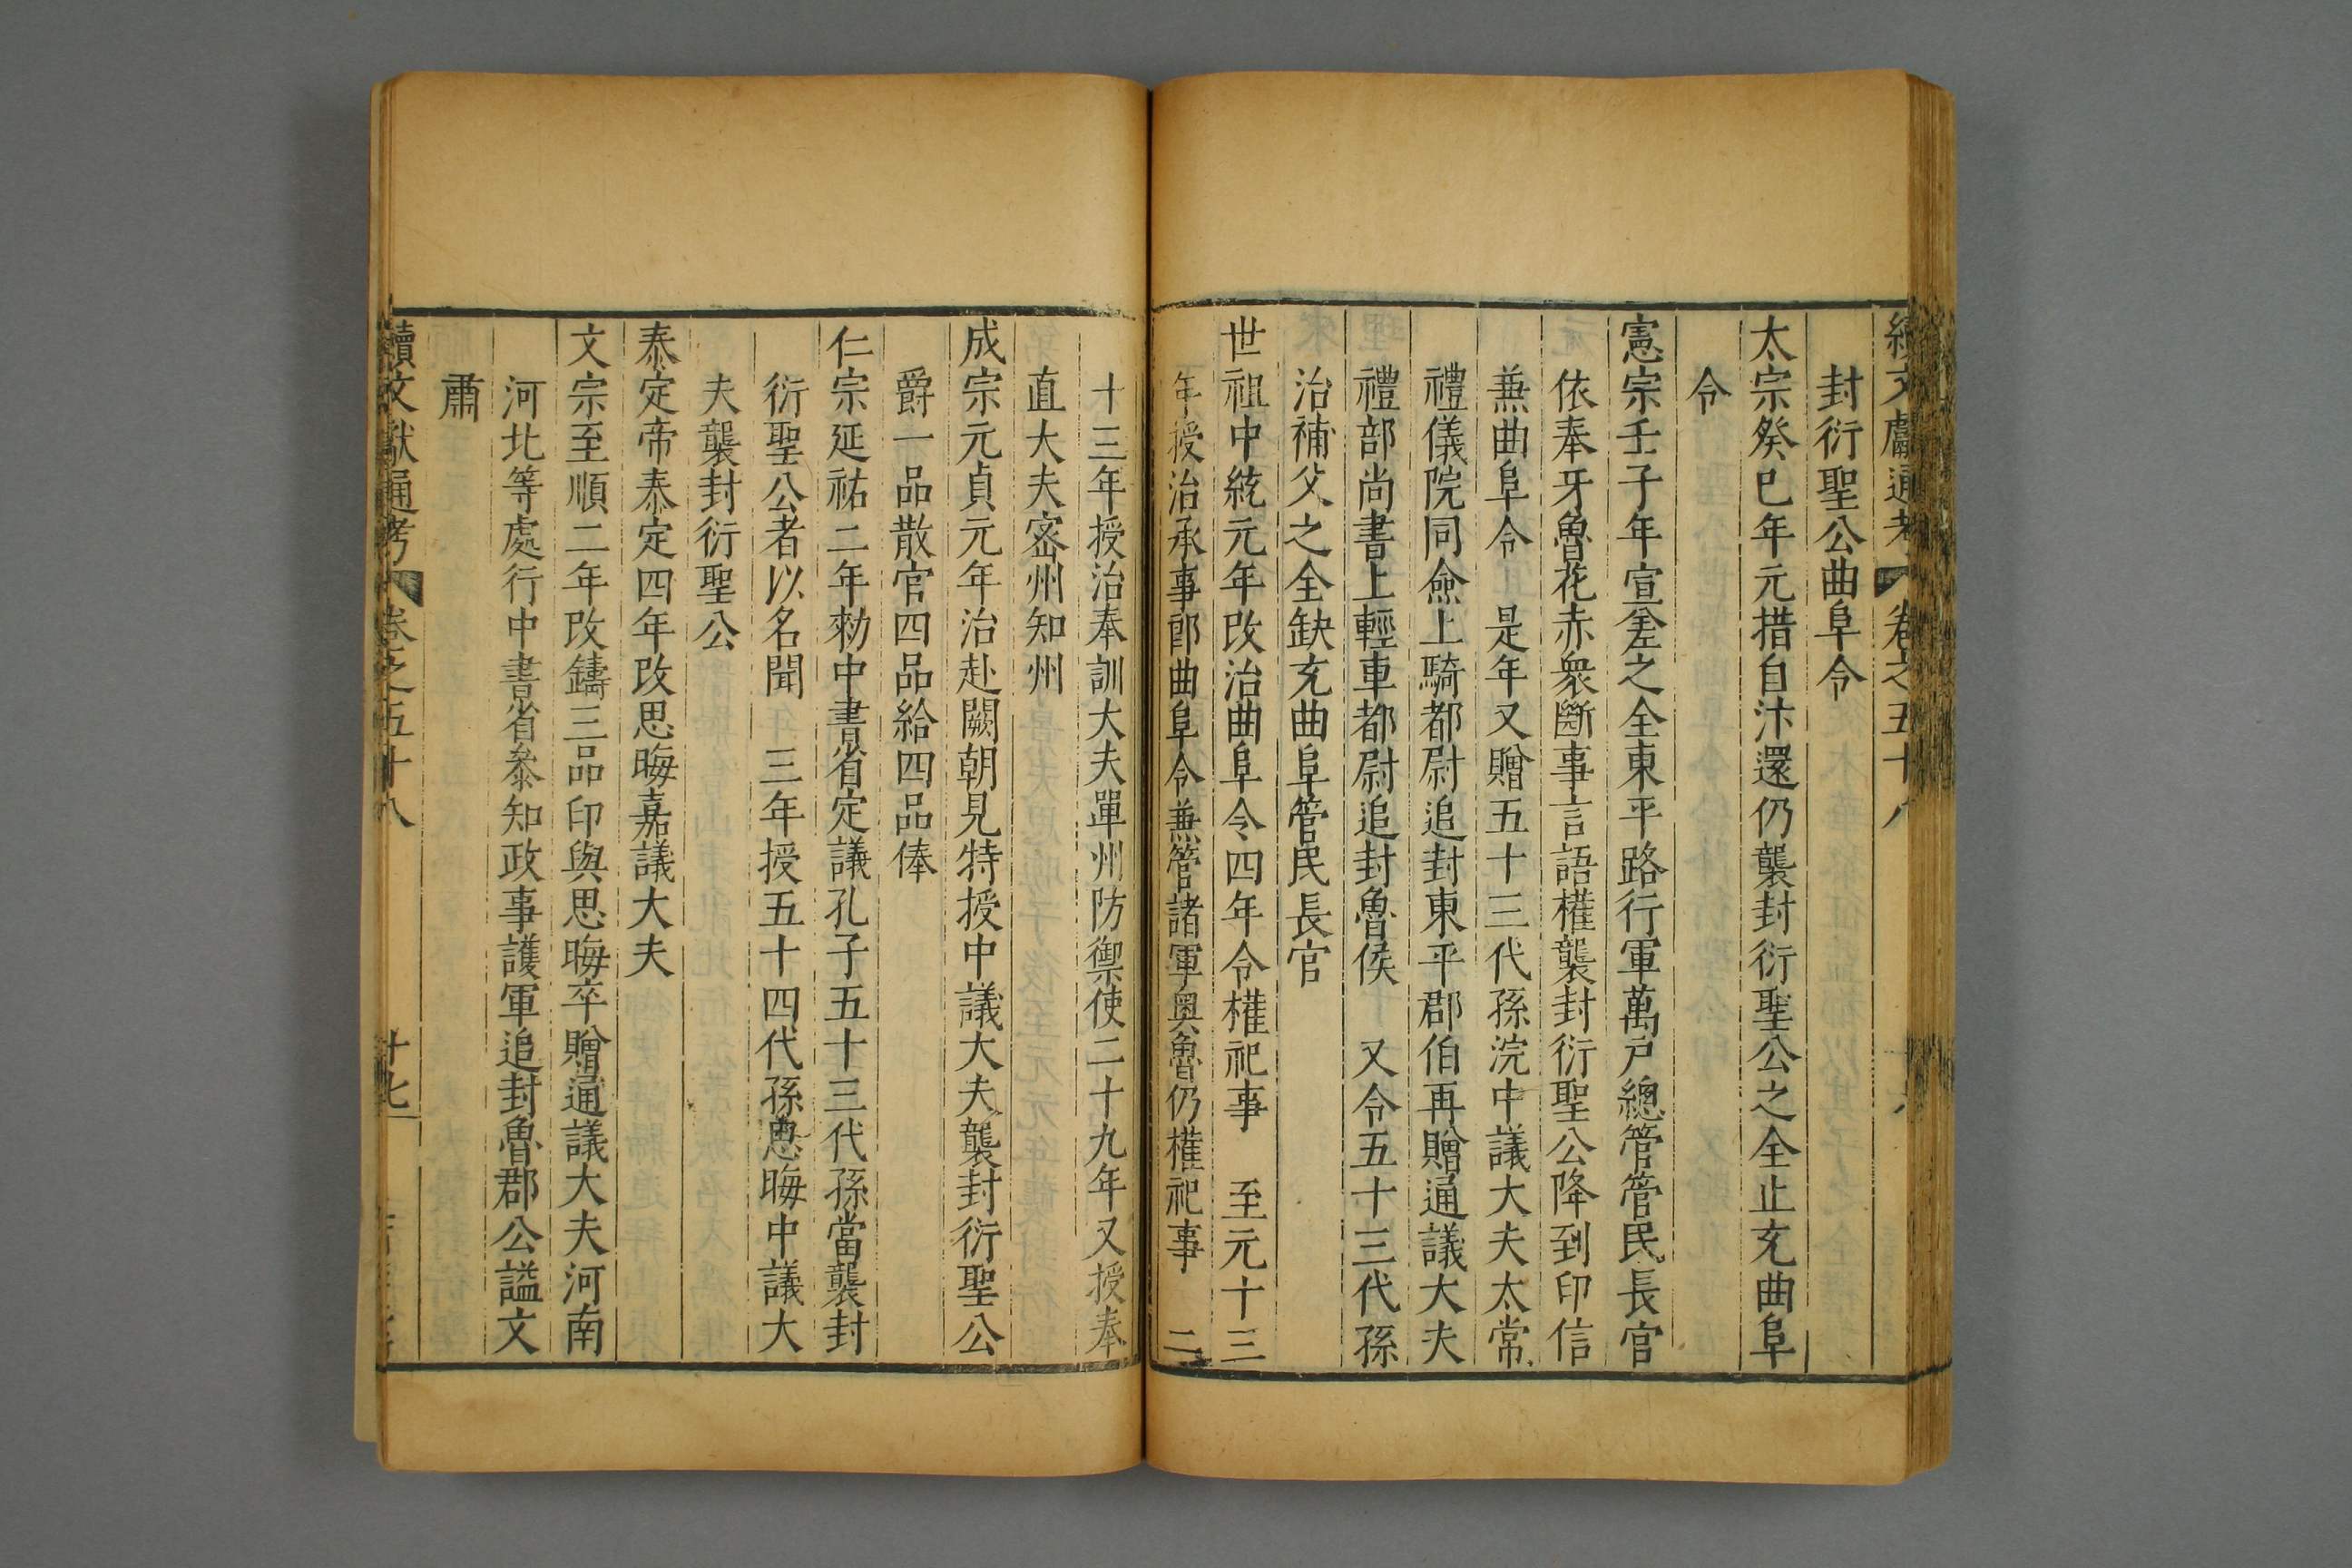 續文獻通考 卷之五十八
封衍聖公曲阜令
太宗癸巳年元措自汴還仍襲封衍聖公之全止充曲阜
令
憲宗壬子年宣差之全東平路行軍萬戸總管管民長官
依奉牙魯花赤衆斷事言語權襲封衍聖公降到印信
兼曲阜令 是年又贈五十三代孫浣中議大夫太常
禮儀院同僉上騎都尉追封東平郡伯再贈通議大夫
禮部尚書上輕車都尉追封魯侯 又令五十三代孫
治補父之全缺充曲阜管民長官
世祖中統元年改治曲阜令四年令權祀事 至元十三
年授治承事郎曲阜令兼管諸軍奥魯仍權祀事 二
十三年授治奉訓大夫單州防禦使二十九年又授奉
直大夫宻州知州
成宗元貞元年治赴闕朝見特授中議大夫襲封衍聖公
爵一品散官四品給四品俸
仁宗延祐二年勑中書省定議孔子五十三代孫當襲封
衍聖公者以名聞 三年授五十四代孫思晦中議大
夫襲封衍聖公
泰定帝泰定四年改思晦嘉議大夫
文宗至順二年改鑄三品印與思晦卒贈通議大夫河南
河北等處行中書省叅知政事護軍追封魯郡公謚文
肅
續文獻通考 卷之五十八 十七